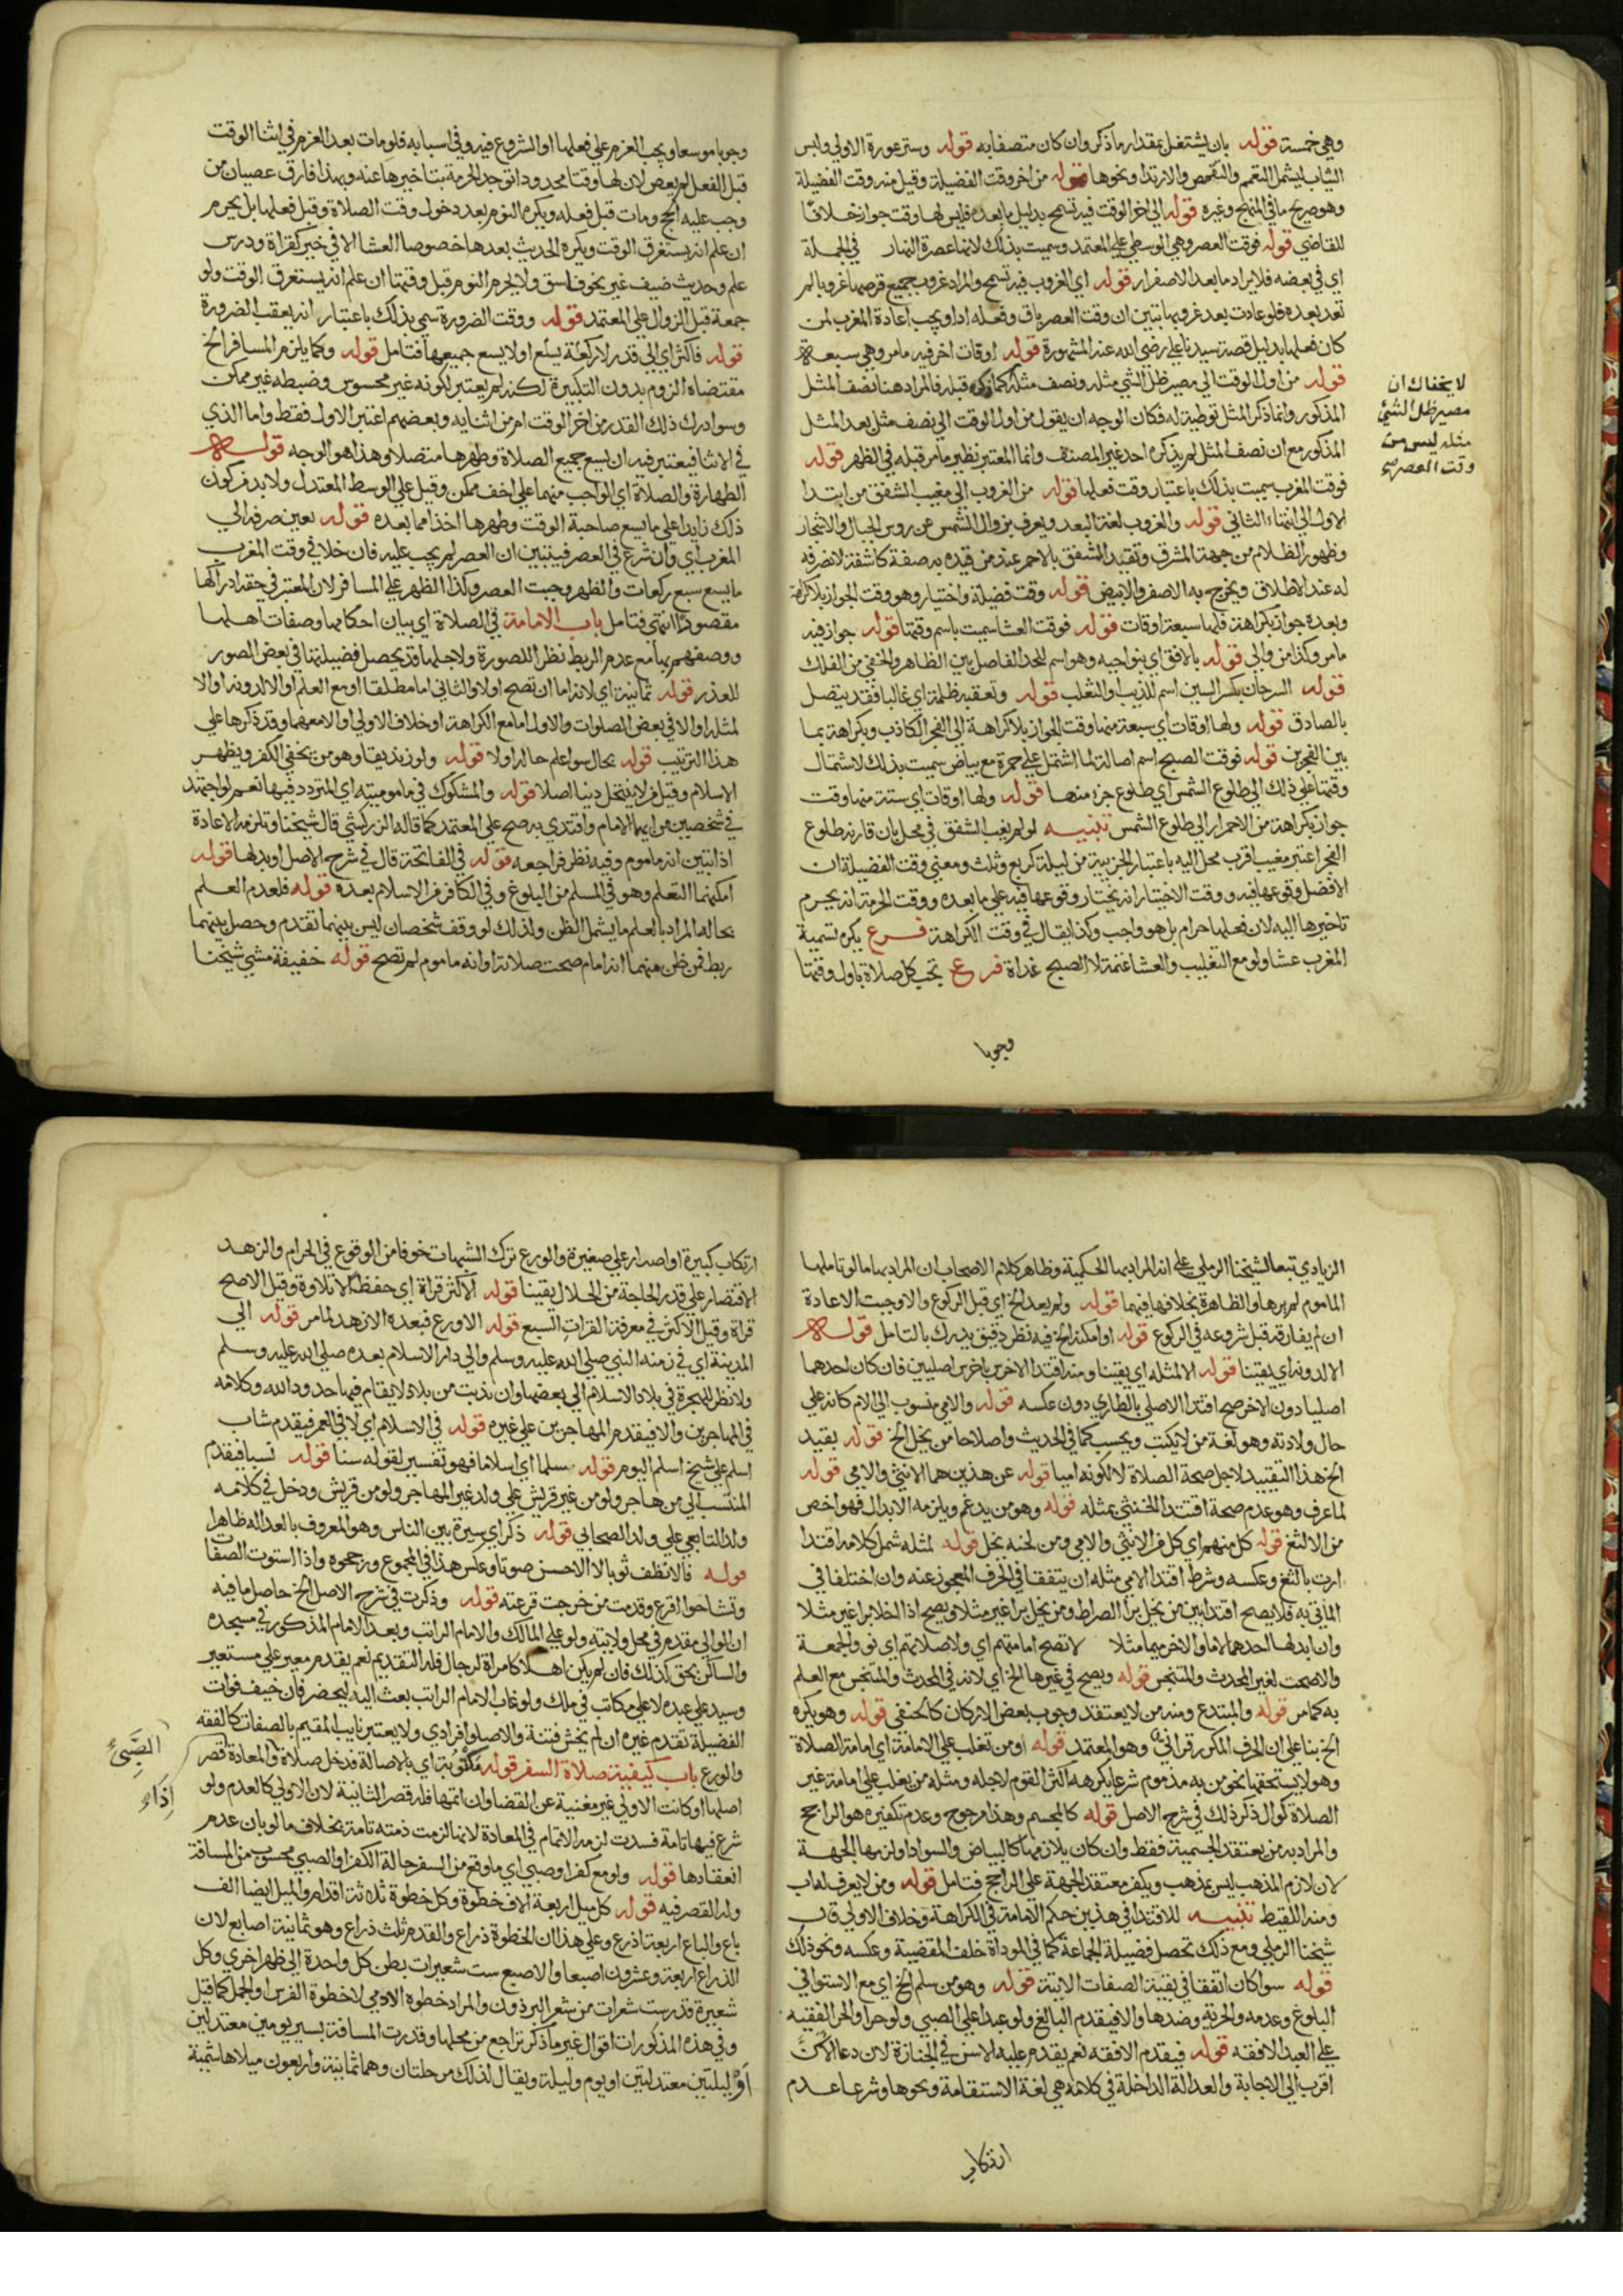 وهي خمسة قوله بان يشتغل بمقدار ماذكر وان كان متصفا به قوله وستر عورة الاولي ولبس
الثياب ليشمل التعمم والتقمص والارتدا ونحوها قوله من اخر وقت الفضيلة وقيل منه وقت الفضيلة
وهو صريح ما في المنهج وغيره قوله الي اخر الوقت فيه تسمح بدليل ما بعده فليس لها وقت جواز خلافا
للقاضي قوله فوقت العصر وهي الوسطي علي المعتمد وسميت بذلك لانها عصرة النهار في الجملة
اي في بعضه فلا يراد ما بعد الاصفرار قوله اي الغروب فيه تسمح والمراد غروب جميع قرصها غروبا لم
تعد بعده فلو عادت بعد غروبها تبين ان وقت العصر باق وفعله ادا ويجب اعادة المغرب لمن
كان فعلها بدليل قصة سيدنا علي رضي الله عنه المشهورة قوله اوقات اخر فيه ما مر وهي سبعة
قوله من اول الوقت الي مصير ظل الشي مثله ونصف مثله كما ذكره قبله فالمراد هنا نصف المثل
المذكور وانما ذكر المثل توطية له فكان الوجه ان يقول من اول الوقت الي نصف مثل بعد المثل
المذكور مع ان نصف المثل لم يذكره احد غير المصنف وانما المعتبر نظير ما مر قبله في الظهر قوله
فوقت المغرب سميت بذلك باعتبار وقت فعلها قوله من الغروب الي مغيب الشفق من ابتدا
الاول الي انتهاء الثاني قوله والغروب لغة البعد ويعرف بزوال الشمس عن روس الجبال والاشجار
وظهور الظلام من جهة المشرق وتقييد الشفق بالاحمر عند من قيده به صفة كاشفة لانصرافه
له عند الاطلاق ويخرج به الاصفر والابيض قوله وقت فضيلة واختيار وهو وقت الجواز بلا كراهة
وبعده جواز بكراهة فلها سبعة اوقات قوله فوقت العشا سميت باسم وقتها قوله جواز فيه
ما مر وكذا من والي قوله بالافق اي بنواحيه وهو اسم للحد الفاصل بين الظاهر والخفي من الفلك
قوله السرحان بكسر السين اسم للذيب او الثعلب قوله وتعقبه ظلمة اي غالبا فقد يتصل
بالصادق قوله ولها اوقات اي سبعة منها وقت الجواز بلا كراهة الي الفجر الكاذب وبكراهة بما
بين الفجرين قوله فوقت الصبح اسم اصالة لما اشتمل علي حمرة مع بياض سميت بذلك لاشتمال
وقتها علي ذلك الي طلوع الشمس اي طلوع جزء منها قوله ولها اوقات اي ستة منها وقت
جواز بكراهة من الاحمرار الي طلوع الشمس تنبيه لو لم يغب الشفق في محل بان قارنه طلوع
الفجر اعتبر مغيب اقرب محل اليه باعتبار الجزيية من ليلة كربع وثلث ومعني وقت الفضيلة ان
الافضل وقوعها فيه ووقت الاختيار انه يختار وقوعها فيه علي ما بعده ووقت الحرمة انه يحرم
تاخيرها اليه لان فعلها حرام بل هو واجب وكذا يقال في وقت الكراهة فرع يكره تسمية
المغرب عشا ولو مع التغليب والعشا عتمة لا الصبح غداة فرع تجب كل صلاة باول وقتها
وجوبا
لا يخفاك ان
مصير ظل الشي
مثله ليس من
وقت العصر
وجوبا موسعا ويجب العزم علي فعلها او الشروع فيه وفي اسبابه فلو مات بعد العزم في اثنا الوقت
قبل الفعل لم يعص لان لها وقتا محدودا توجد الحرمة بتاخيرها عنه وبهذا فارق عصيان من
وجب عليه الحج ومات قبل فعله ويكره النوم بعد دخول وقت الصلاة وقبل فعلها بل يحرم
ان علم انه يستغرق الوقت ويكره الحديث بعدها خصوصا العشا الا في خير كقراة ودرس
علم وحديث ضيف غير نحو فاسق ولا يحرم النوم قبل وقتها ان علم انه يستغرق الوقت ولو
جمعة قبل الزوال علي المعتمد قوله ووقت الضرورة سمي بذلك باعتبار انه يعقب الضرورة
قوله فاكثر اي الي قدر لا ركعة يسع او لا يسع جميعها فتامل قوله وكما يلزم المسافر الخ
مقتضاه الزوم بدون التكبيرة لكنه لم يعتبر لكونه غير محسوس وضبطه غير ممكن
وسوا درك ذلك القدر من اخر الوقت ام من اثنايه وبعضهم اعتبر الاول فقط واما الذي
في الاثنا فيعتبر فيه ان يسع جميع الصلاة وطهرها متصلا وهذا هو الوجه قوله
الطهارة والصلاة اي الواجب منهما علي اخف ممكن وقيل علي الوسط المعتدل ولا بد في كون
ذلك زايدا علي ما يسع صاحبة الوقت وطهرها اخذا مما بعده قوله تعين صرفه الي
المغرب اي وان شرع في العصر فيتبين ان العصر لم يجب عليه فان خلا في وقت المغرب
ما يسع سبع ركعات والظهر وجبت العصر وكذا الظهر علي المسافر لان المعتبر في حقه ادراكها
مقصورة انتهي فتامل باب الامامة في الصلاة اي بيان احكامها وصفات اهلها
ووصفهم بها مع عدم الربط نظرا للصورة ولاجلها قد يحصل فضيلتها في بعض الصور
للعذر قوله ثمانية اي لانه اما ان تصح اولا والثاني اما مطلقا او مع العلم او الا لدونه او الا
لمثله او الا في بعض الصلوات والاول اما مع الكراهة او خلاف الاولي او لا معهما وقد ذكرها علي
هذا الترتيب قوله بحال سوا علم حاله اولا قوله ولو زنديقا وهو من يخفي الكفر ويظهر
الاسلام وقيل من لا ينتحل دينا اصلا قوله والمشكوك في ماموميته اي المتردد فيها نعم لو اجتهد
في شخصين من ايهما الامام واقتدي به صح علي المعتمد كما قاله الزركشي قال شيخنا وتلزمه الاعادة
اذا تبين انه ماموم وفيه نظر فراجعه قوله في الفاتحة قال في شرح الاصل او بدلها قوله
امكنهما التعلم وهو في المسلم من البلوغ وفي الكافر من الاسلام بعده قوله فلعدم العلم
بحاله المراد بالعلم ما يشمل الظن ولذلك لو وقف شخصان ليس بينهما تقدم وحصل بينهما
ربط فمن ظن منهما انه امام صحت صلاته او انه ماموم لم تصح قوله خفيفة مشي شيخنا
الزيادي تبعا لشيخنا الرملي علي انه المراد بها الحكمية وظاهر كلام الاصحاب ان المراد بها ما لو تاملها
الماموم لم يرها والظاهرة بخلافها فيهما قوله ولم يعد الخ اي قبل الركوع والا وجبت الاعادة
ان لم يفارقه قبل شروعه في الركوع قوله او امكنه الخ فيه نظر دقيق يدرك بالتامل قوله
الا لدونه اي يقينا قوله الا لمثله اي يقينا ومنه اقتدا الاخرس باخرس اصليين فان كان احدهما
اصليا دون الاخر صح اقتدا الاصلي بالطاري دون عكسه قوله والامي منسوب الي الام كانه علي
حال ولادته وهو لغة من لا يكتب ويحسب كما في الحديث واصلاحا من يخل الخ قوله بقيد
الخ هذا التقييد لاجل صحة الصلاة لا لكونه اميا قوله عن هذين هما الانثي والامي قوله
لما عرف وهو عدم صحة اقتدا الخنثي بمثله قوله وهو من يدغم ويلزمه الابدال فهو اخص
من الالثغ قوله كل منهم اي كل من الانثي والامي ومن لحنه يخل قوله لمثله شمل كلامه اقتدا
ارت بالثغ وعكسه وشرط اقتدا الامي مثله ان يتفقا في الحرف المعجوز عنه وان اختلفا في
الماتي به فلا يصح اقتدا بين من يخل برا الصراط ومن يخل برا غير مثلا ويصح اذا اخلا برا غير مثلا
وان ابدلها احدهما لاما والاخر ميما مثلا لا تصح امامتهم اي ولا صلاتهم اي نوو الجمعة
والا صحت لغير المحدث والمتنجس قوله ويصح في غيرها الخ اي لانه في المحدث والمتنجس مع العلم
به كما مر قوله والمبتدع ومنه من لا يعتقد وجوب بعض الاركان كالحنفي قوله وهو يكره
الخ بنا علي ان الحرف المكرر قراني وهو المعتمد قوله او من تغلب علي الامامة اي امامة الصلاة
وهو لا يستحقها نحو من به مذموم شرعا يكرهه اكثر القوم لاجله ومثله من يغلب علي امامة غير
الصلاة كوال ذكر ذلك في شرح الاصل قوله كالمجسم وهذا مرجوح وعدم تكفيره هو الراجح
والمراد به من يعتقد الجسمية فقط وان كان يلازمها كالبياض والسواد او لزمها الجهة
لان لازم المذهب ليس بمذهب ويكفر معتقد الجهة علي الراجح فتامل قوله ومن لا يعرف له اب
ومنه اللقيط تنبيه للاقتدا في هذين حكم الامامة في الكراهة وخلاف الاولي قال
شيخنا الرملي ومع ذلك تحصل فضيلة الجماعة كما في الموداة خلف المقضية وعكسه ونحو ذلك
قوله سوا كان اتفقا في بقية الصفات الاتية قوله وهو من سلم الخ اي مع الاستوا في
البلوغ وعدمه والحرية وضدها والا فيقدم البالغ ولو عبدا علي الصبي ولو حرا والحر الفقيه
علي العبد الافقه قوله فيقدم الافقه نعم يقدم عليه الاسن في الجنازة لان دعا الاسن
اقرب الي الاجابة والعدالة الداخلة في كلامه هي لغة الاستقامة ونحوها وشرعا عدم
ارتكاب
ارتكاب كبيرة او اصرار علي صغيرة والورع ترك الشبهات خوفا من الوقوع في الحرام والزهد
الاقتصار علي قدر الحاجة من الحلال يقينا قوله الاكثر قراة اي حفظا لا تلاوة وقيل الاصح
قراة وقيل الاكثر في معرفة القرات السبع قوله الاورع فبعده الازهد لما مر قوله الي
المدينة اي في زمنه النبي صلي الله عليه وسلم والي دار الاسلام بعده صلي الله عليه وسلم
ولا نظر للهجرة في بلاد الاسلام الي بعضها وان ندبت من بلاد لا يقام فيها حدود الله وكلامه
في المهاجرين والا فيقدم المهاجرين علي غيره قوله في الاسلام اي لا في العمر فيقدم شاب
اسلم علي شيخ اسلم اليوم قوله سلما اي اسلاما فهو تفسير لقوله سنا قوله نسبا فيقدم
المنتسب الي من هاجر ولو من غير قريش علي ولد غير المهاجر ولو من قريش ودخل في كلامه
ولد التابعي علي ولد الصحابي قوله ذكرا اي سيرة بين الناس وهو المعروف بالعدالة ظاهرا
قوله فالانظف ثوبا لا الاحسن صوتا وعكس هذا في المجموع ورجحوه واذا استوت الصفات
وتشاحوا اقرع وقدمت من خرجت قرعته قوله وذكرت في شرح الاصل الخ حاصل ما فيه
ان الوالي مقدم في محل ولايته ولو علي المالك والامام الراتب وبعد الامام المذكور في مسجده
والساكن بحق كذلك فان لم يكن اهلا كامراة لرجال فله التقديم نعم يقدم معير علي مستعير
وسيد علي عبده لا علي مكاتب في ملك ولو غاب الامام الراتب بعث اليه ليحضر فان خيف فوات
الفضيلة تقدم غيره ان لم يخش فتنة والا صلوا فرادي ولا يعتبر نايب المقيم بالصفات كالفقه
والورع باب كيفية صلاة السفر قوله مكتوبة اي بالاصالة فدخل صلاة والمعادة قصر
اصلها او كانت الاولي غير مغنية عن القضا وان اتمها فله قصر الثانية لان الاولي كالعدم ولو
شرع فيها تامة فسدت لزمه الاتمام في المعادة لانها لزمت ذمته تامة بخلاف ما لو بان عدم
انعقادها قوله ولو مع كفر او صبي اي ما وقع من السفر حالة الكفر او الصبي محسوب من المسافة
وله القصر فيه قوله كل ميل اربعة الاف خطوة وكل خطوة ثلاثة اقدام والميل ايضا الف
باع والباع اربعة اذرع وعلي هذا ان الخطوة ذراع والقدم ثلث ذراع وهو ثمانية اصابع لان
الذراع اربعة وعشرون اصبعا والاصبع ست شعيرات بطن كل واحدة الي ظهر اخري وكل
شعيرة قدر ست شعرات من شعر البرذون والمراد خطوة الادمي لا خطوة الفرس او الجمل كما قيل
وفي هذه المذكورات اقوال غير ما ذكر تراجع من محلها وقدرت المسافة بسير يومين معتدلين
او ليلتين معتدلتين او يوم وليلة ويقال لذلك مرحلتان وهما ثمانية واربعون ميلا هاشمية
الصَّبيّ
اداء